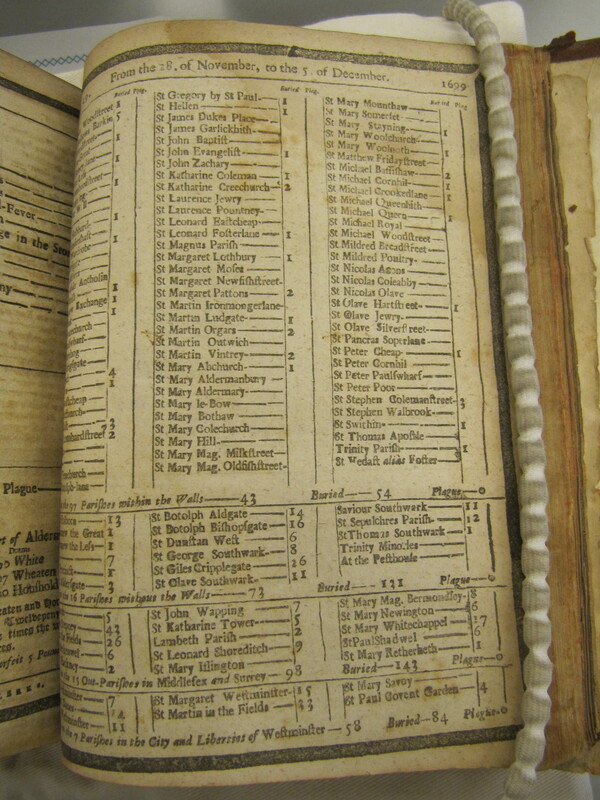 -Fever
ge in the Sto
ny
Plague
rt of Alderm
White
Wheaten
Houshold
From the 28. of November, to the 5. of December. 1699
Buried Plag.
Buried Plag.
Buried Plag
Woodstreet 1
Barkin 5
Antholin
Exchange 1
4
1
3
2
St Gregory by St Paul 1
St Hellen 1
St James Dukes Place 1
St James Garlickhith
St John Baptist
St John Evangelist 1
St John Zachary
St Katharine Coleman 1
St Katharine Creechurch 2
St Laurence Jewry
St Laurence Pountney
St Leonard Eastcheap
St Leonard Fosterlane 1
St Magnus Parish
St Margaret Lothbury 1
St Margaret Moses
St Margaret Newfishstreet
St Margaret Pattons 2
St Martin Ironmongerlane
St Martin Ludgate 1
St Martin Orgars 2
St Martin Outwich
St Martin Vintrey 2
St Mary Abchurch 1
St Mary Aldermanbury
St Mary Aldermary
St Mary le-Bow
St Mary Bothaw
St Mary Colechurch
St Mary Hill
St Mary Mag. Milkstreet
St Mary Mag. Oldfishstreet
St Mary Mounthaw
St Mary Somerset
St Mary Stayning 1
St Mary Woolchurch
St Mary Woolnoth 1
St Matthew Fridaystreet
St Michael Bassishaw 2
St Michael Cornhil 1
St Michael Crookedlane 1
St Michael Queenhith
St Michael Quern 1
St Michael Royal
St Michael Woodstreet
St Mildred Breadstreet
St Mildred Poultry
St Nicolas Acons
St Nicolas Coleabby
St Nicolas Olave
St Olave Hartstreet 1
St Olave Jewry
St Olave Silverstreet
St Pancras Soperlane
St Peter Cheap 1
St Peter Cornhil
St Peter Paulswharf
St Peter Poor
St Stephen Colemanstreet 3
St Stephen Walbrook
St Swithin 1
St Thomas Apostle
Trinity Parish 1
St Vedast alias Foster
the 97 Parishes within the Walls 43 Buried 54 Plague 0
13
the Great 1
the Less 1
7
1
3
St Botolph Aldgate 14
St Botolph Bishopsgate 16
St Dunstan West 6
St George Southwark 8
St Giles Cripplegate 26
St Olave Southwark 11
Saviour Southwark 11
St Sepulchres Parish 12
St Thomas Southwark 1
Trinity Minories
At the Pesthouse
the 16 Parishes without the Walls 73 Buried 131 Plague 0
5
43
26
6
2
St John Wapping 7
St Katharine Tower 5
Lambeth Parish 2
St Leonard Shoreditch 9
St Mary Islington
St Mary Mag. Bermondsey 8
St Mary Newington 6
St Mary Whitechappel 17
St Paul Shadwel 6
St Mary Retherheth 1
Out-Parishes in Middlesex and Surrey 98 Buried 143 Plague 0
7
11
St Margaret Westminster 15
St Martin in the Fields 33
St Mary Savoy
St Paul Covent Garden 4
the 7 Parishes in the City and Liberties of Westminster 58 Buried 84 Plague 0